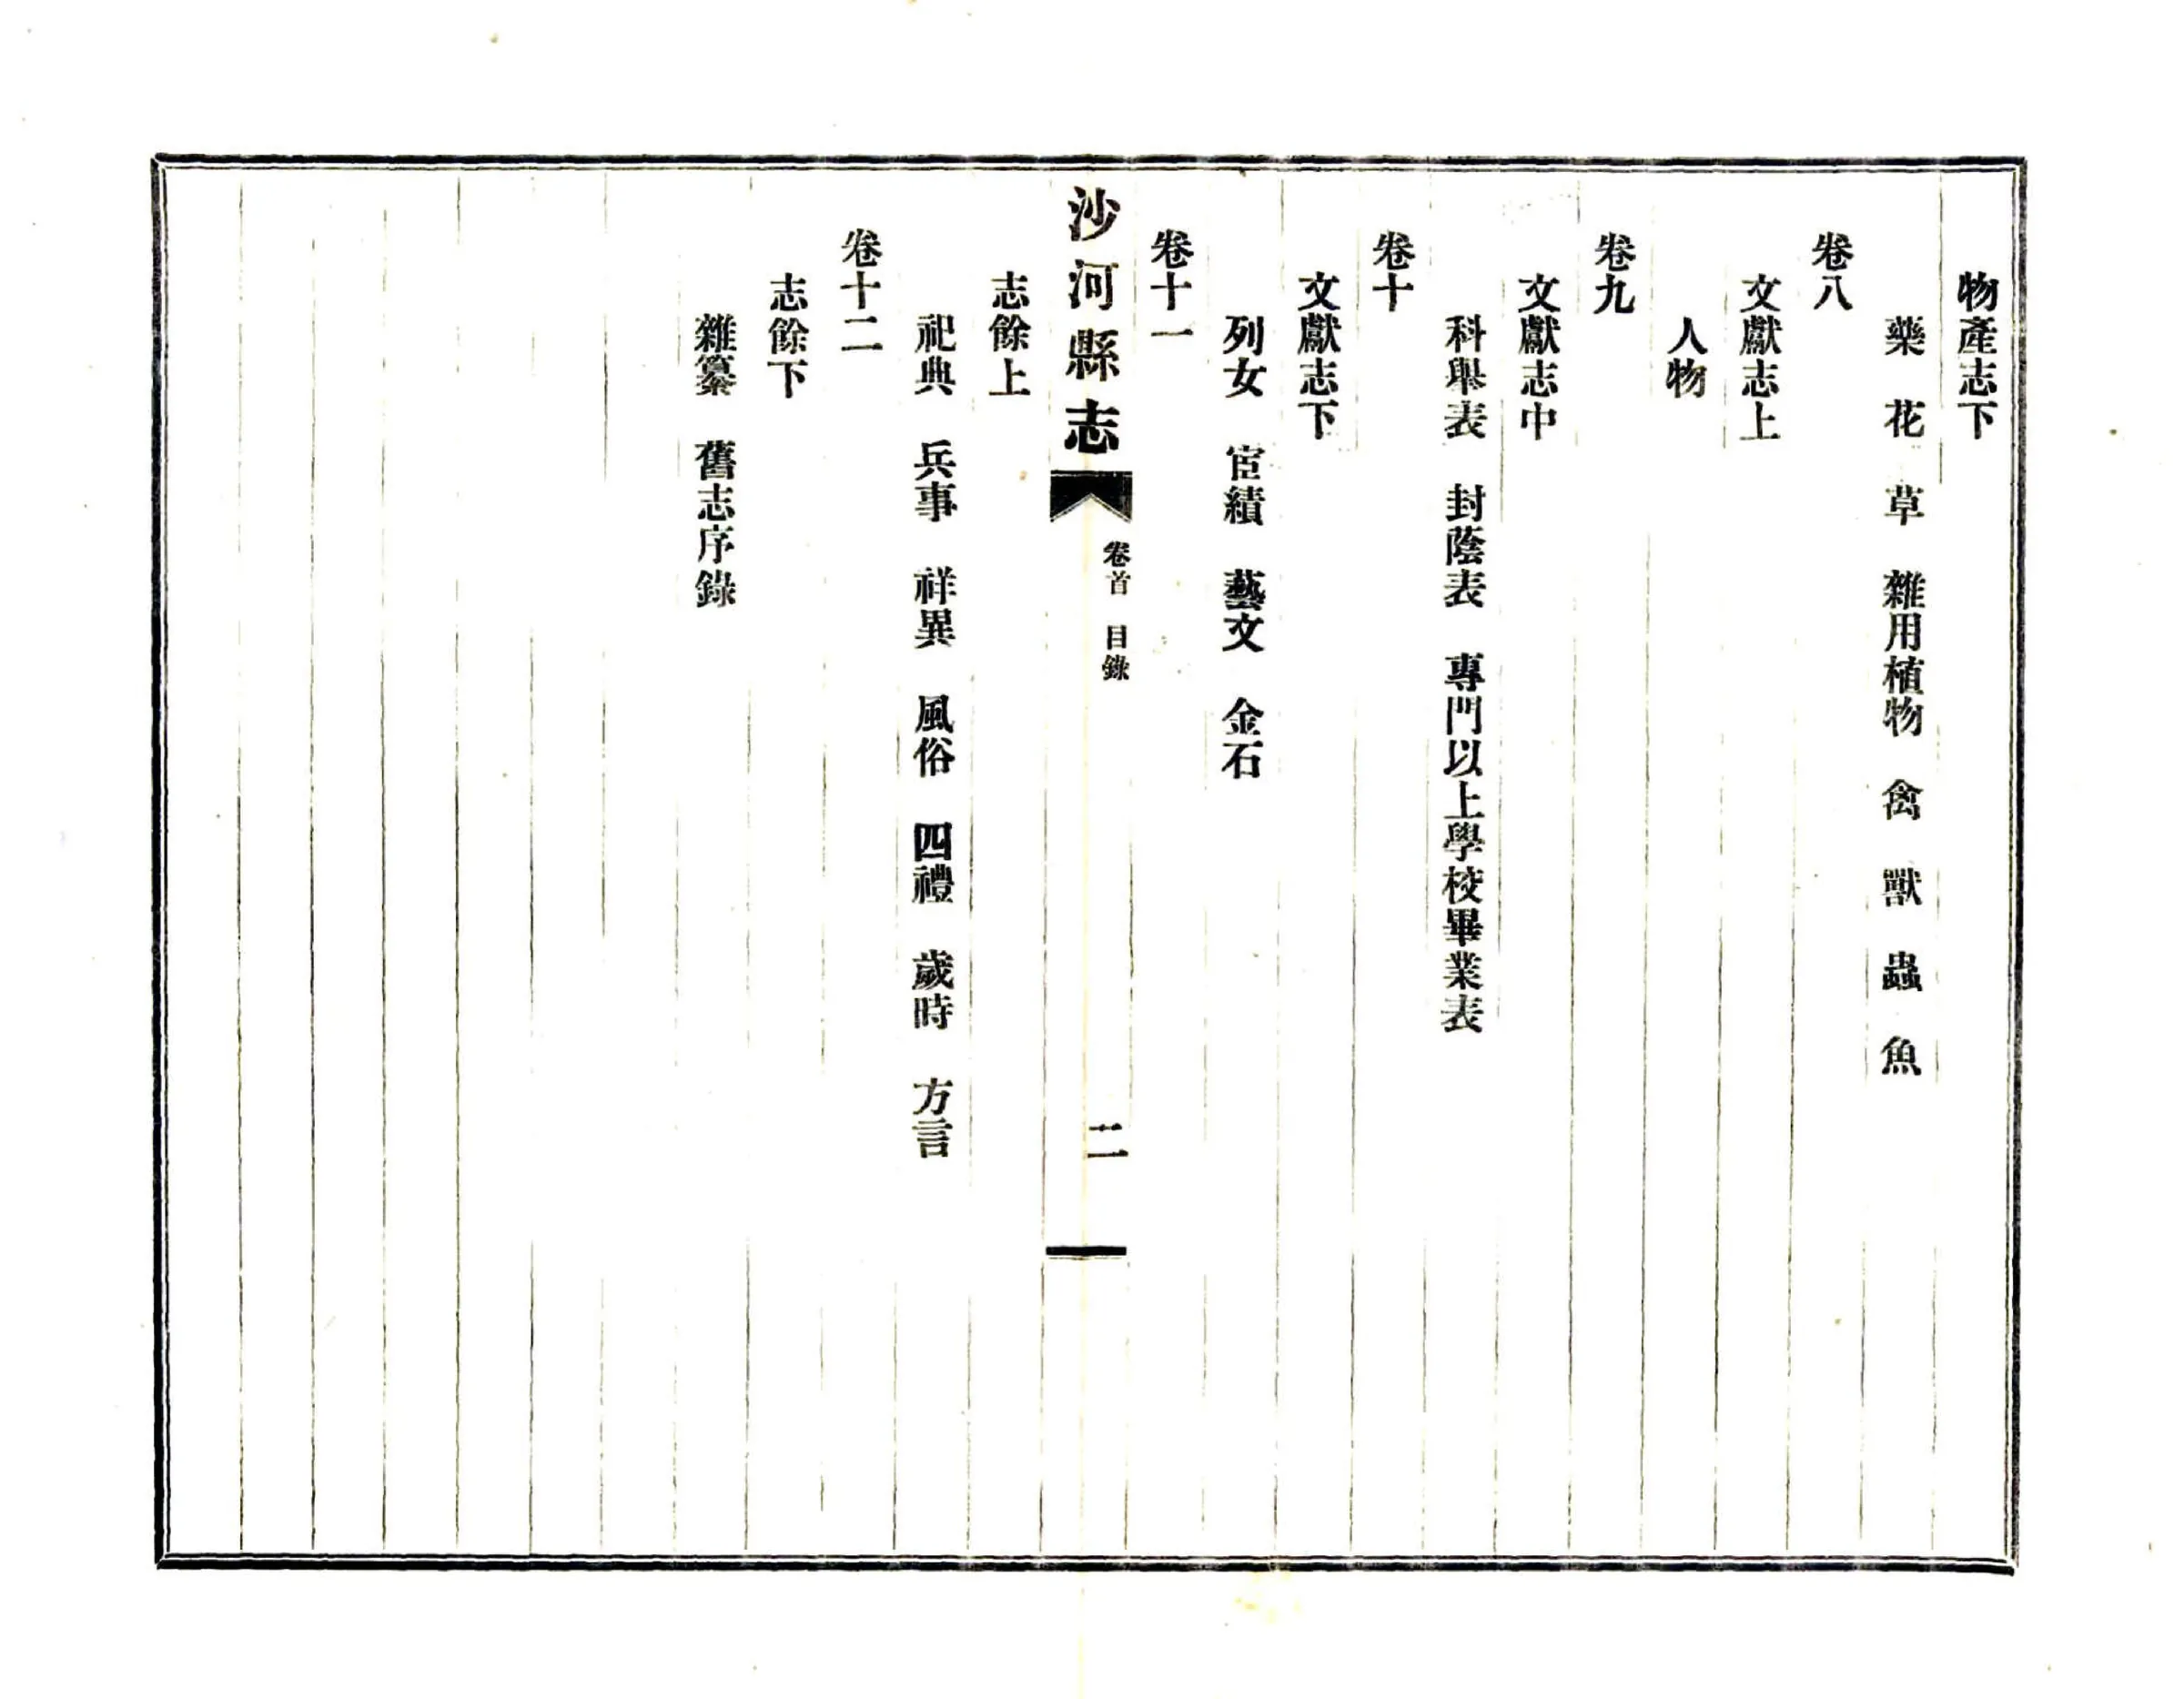 物產志下
藥　花　草　雜用植物　禽　獸　蟲　魚
卷八
文獻志上
人物
卷九
文獻志中
科舉表　封蔭表　專門以上學校畢業表
卷十
文獻志下
列女　宦績　藝文　金石
卷十一
沙河縣志
卷首　目錄
二
志餘上
祀典　兵事　祥異　風俗　四禮　歲時　方言
卷十二
志餘下
雜纂　舊志序錄